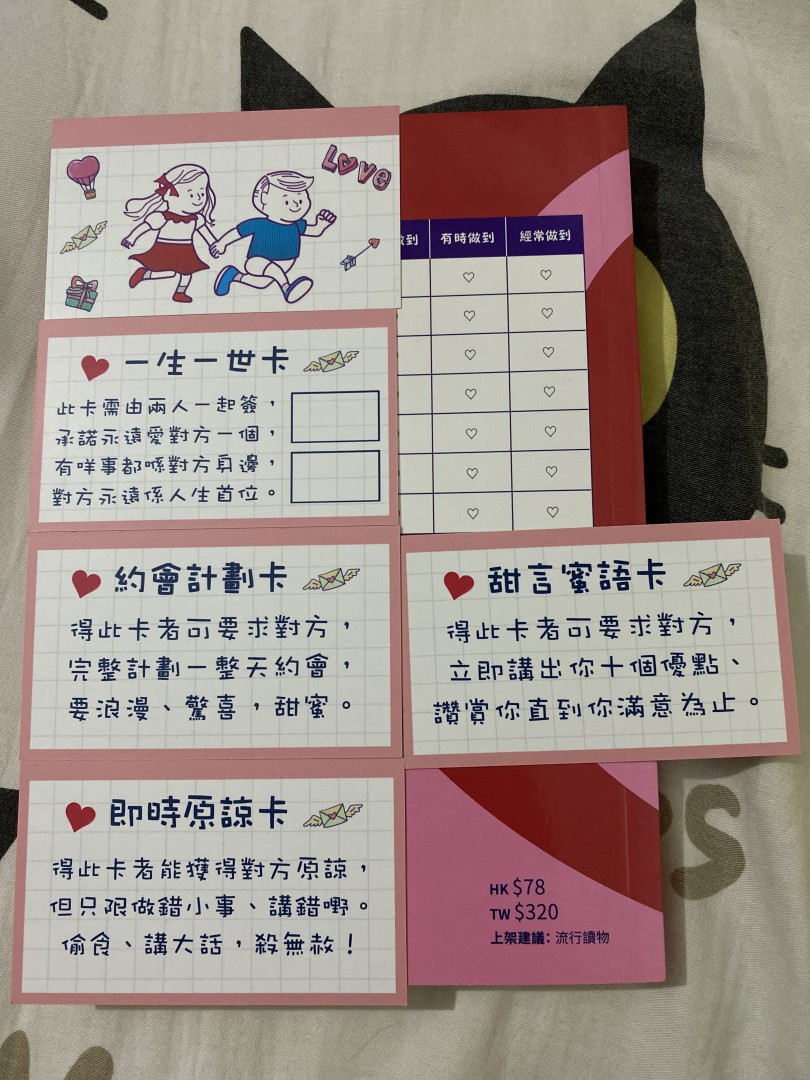 Love
到
有時做到
經常做到
一生一世卡
此卡需由兩人一起簽，
承諾永遠愛對方一個，
有咩事都喺對方身邊，
對方永遠係人生首位。
約會計劃卡
得此卡者可要求對方，
完整計劃一整天約會，
要浪漫、驚喜，甜蜜。
甜言蜜語卡
得此卡者可要求對方，
立即講出你十個優點、
讚賞你直到你滿意為止。
即時原諒卡
得此卡者能獲得對方原諒，
但只限做錯小事、講錯嘢。
偷食、講大話，殺無赦！
HK $78
TW $320
上架建議：流行讀物